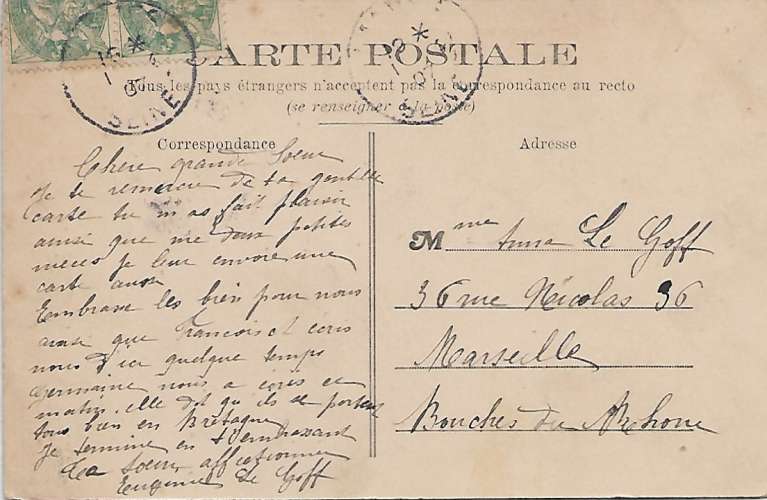 CARTE POSTALE
Tous les pays étrangers n'acceptent pas la correspondance au recto
(se renseigner à la poste)
Correspondance
Adresse
SEINE
SEINE
Chere grande Soeur
Je te remercie de ta gentille
carte tu m'as fait plaisir
ainsi que me deux petites
nieces je leur envoie une
carte aussi
Embrasse les bien pour nous
ainsi que Francois et ecris
nous d'ici quelque temps
Germaine nous a ecris ce
matin, elle dit qu'ils se portent
tous bien en Bretagne
Je termine en t'embrassant
Ta soeur affectionnee
Eugenie Le Goff
Mme Anna Le Goff
36 rue Nicolas 36
Marseille
Bouches du Rhone